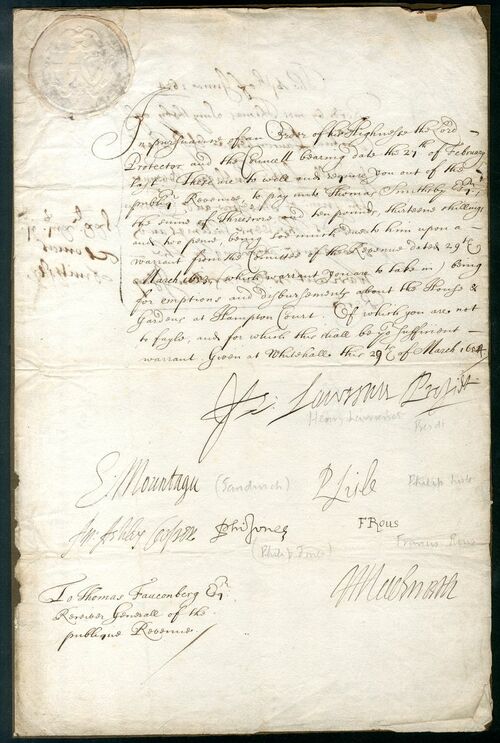 In pursuance of an Order of his Highnesse the Lord
Protector and the Councell bearing date the 27th of February
last These are to will and require you out of the
publiq Revenue to pay unto Thomas Smithsby Esqr
the sume of Threescore and ten pounds, thirteene shillings
and two pence being so much due to him upon a
warrant from the Comittee of the Revenue dated 29th
March 1653, (which warrant you are to take in) being
for emptions and disbursements about the House &
Gardens at Hampton Court. Of which you are not
to fayle, and for which this shall be yor sufficient
warrant Given at Whitehall this 29th of March 1654
He: Lawrence Presidt
Henry Lawrence
Presdt
E Mountagu (Sandwich) P Lisle Philip Lisle
An: Ashley Cooper Phi: Jones FRous
(Philip Jones) Francis Rous
To Thomas Fauconberg Esqr
Receiver Generall of the
publique Revenue.